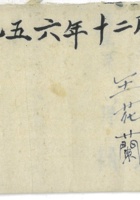 九五六年十二月
王花蘭